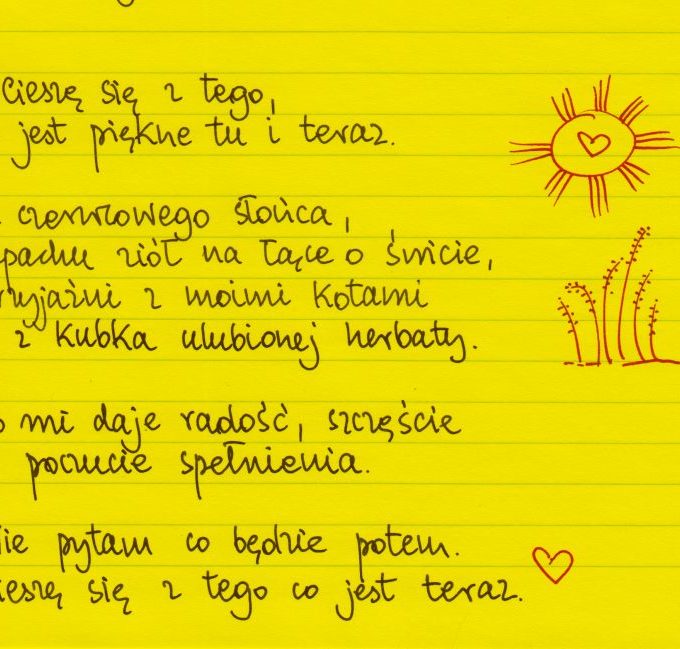 Cieszę się z tego,
jest piękne tu i teraz.
czerwcowego słońca,
pachu ziół na łące o świcie,
rzyjaźni z moimi kotami
z kubka ulubionej herbaty.
o mi daje radość, szczęście
poczucie spełnienia.
ie pytam co będzie potem.
ieszę się z tego co jest teraz.